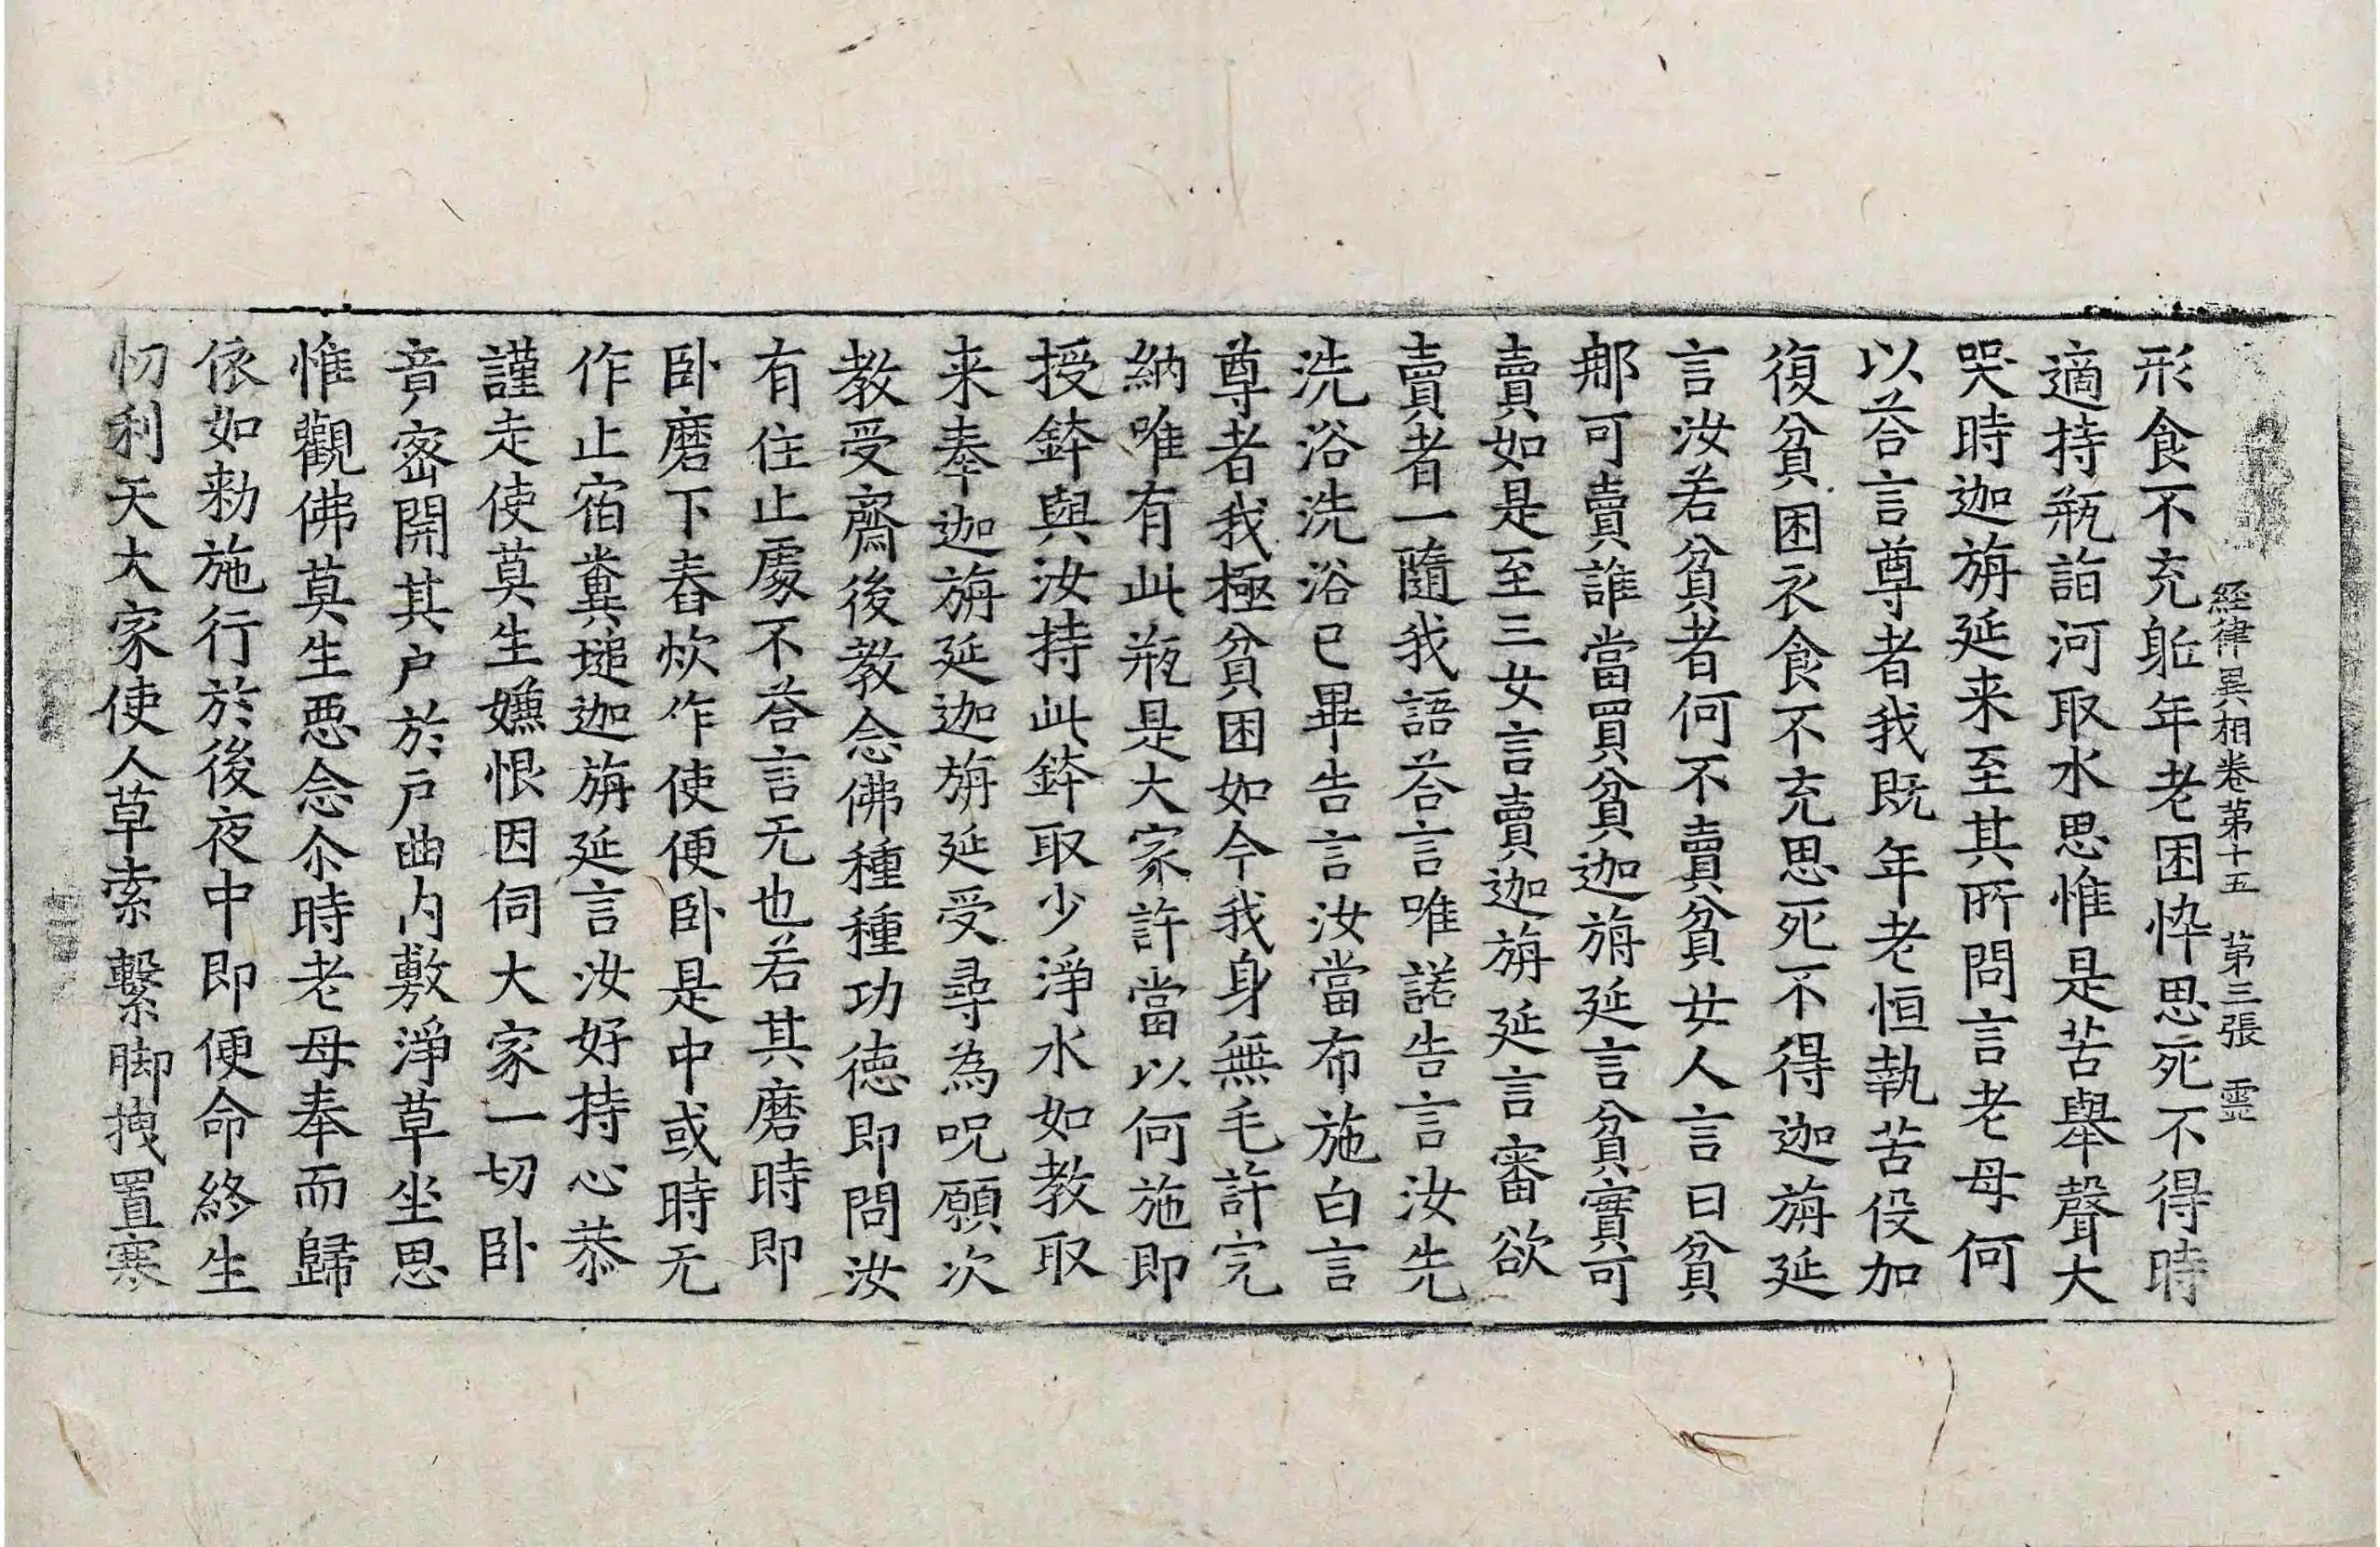 経律異相卷苐十五　苐三張　霊
形食不充躯年老困忰思死不得時
適持瓶詣河取水思惟是苦舉聲大
哭時迦旃延来至其所問言老母何
以荅言尊者我既年老恒執苦役加
復貧困衣食不充思死不得迦旃延
言汝若貧者何不賣貧女人言曰貧
那可賣誰當買貧迦旃延言貧實可
賣如是至三女言賣迦旃延言審欲
賣者一隨我語荅言唯諾告言汝先
洗浴洗浴已畢告言汝當布施白言
尊者我極貧困如今我身無毛許完
納唯有此瓶是大家許當以何施即
授鉢與汝持此鉢取少淨水如教取
来奉迦旃延迦旃延受尋為呪願次
教受齋後教念佛種種功德即問汝
有住止處不荅言无也若其磨時即
卧磨下舂炊作使便卧是中或時无
作止宿糞塠迦旃延言汝好持心恭
謹走使莫生嫌恨因伺大家一切卧
音密開其户於户曲内敷淨草坐思
惟觀佛莫生惡念尒時老母奉而歸
依如勑施行於後夜中即便命終生
忉利天大家使人草索繫脚拽置寒